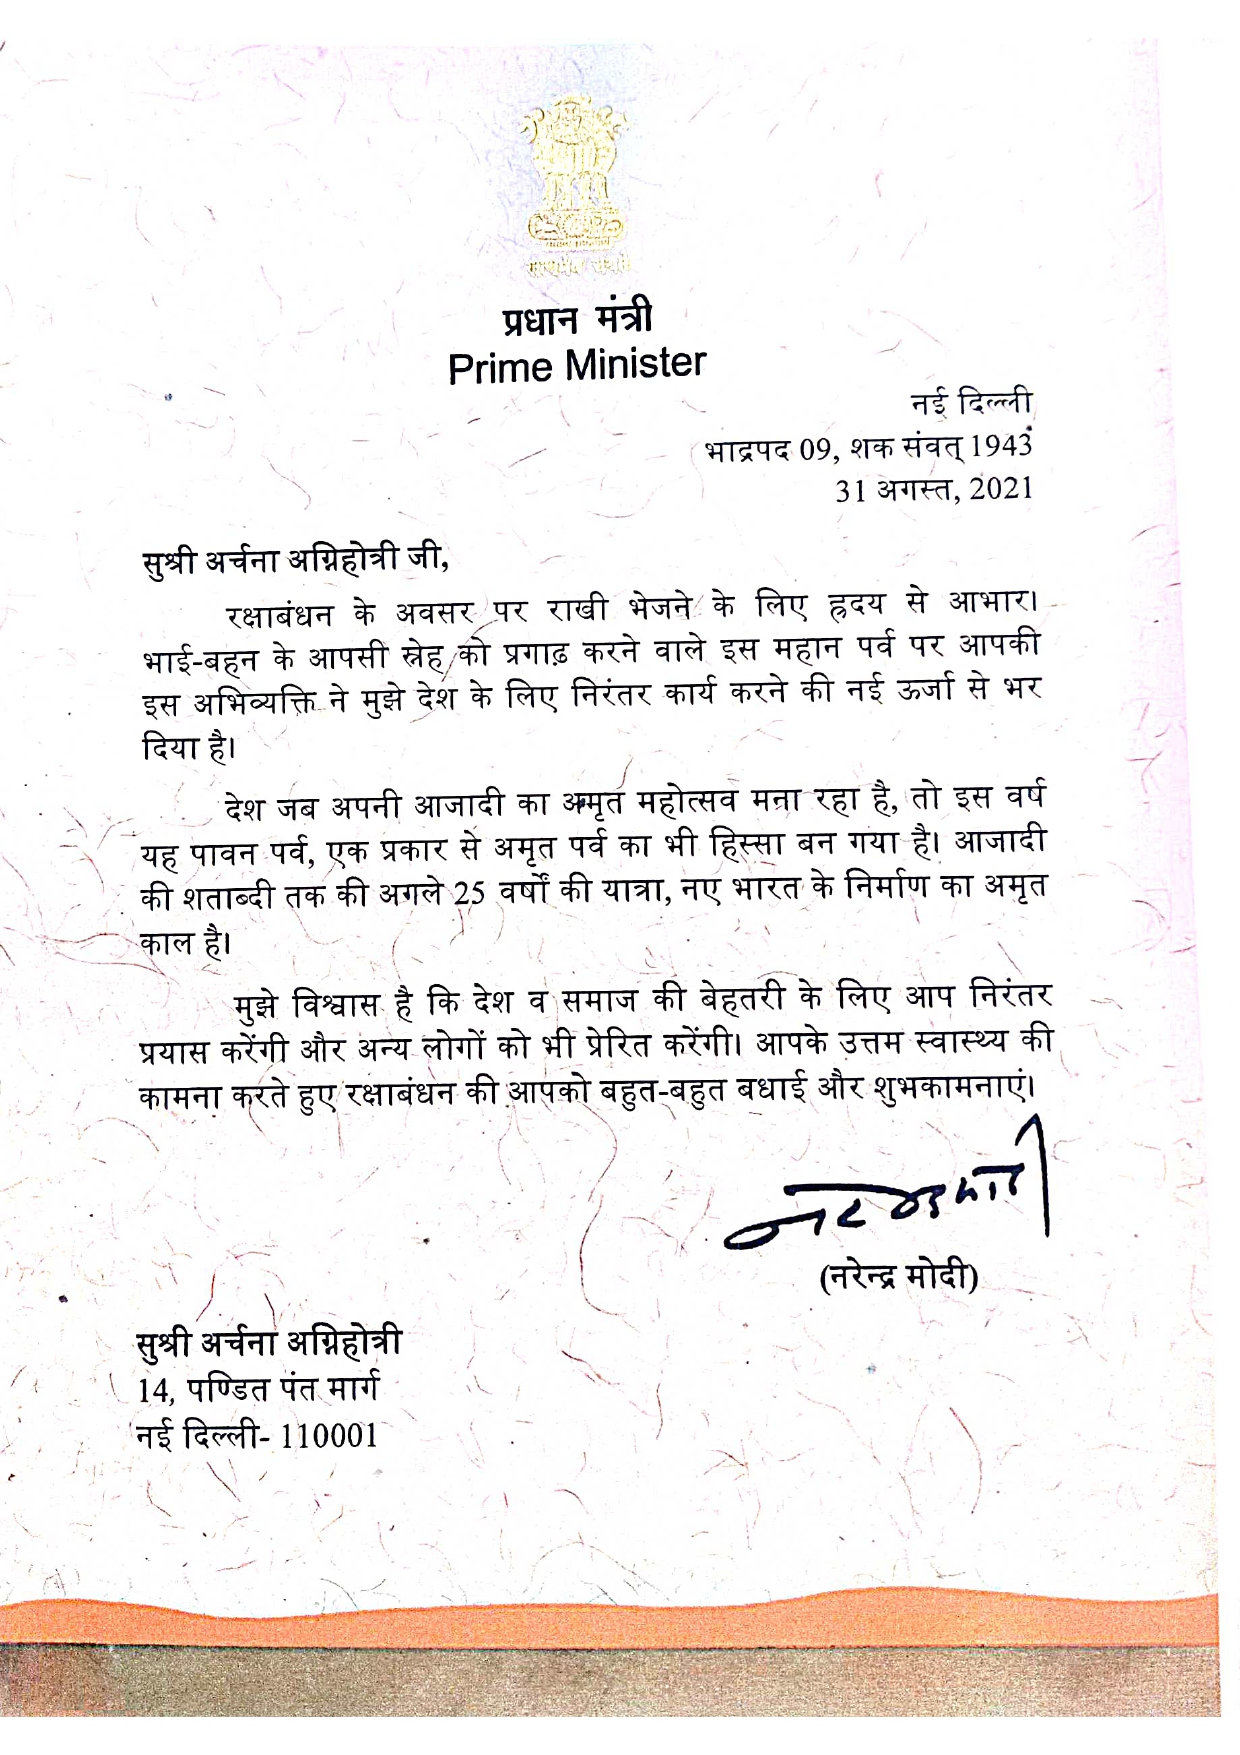 सत्यमेव जयते
प्रधान मंत्री
Prime Minister
नई दिल्ली
भाद्रपद 09, शक संवत् 1943
31 अगस्त, 2021
सुश्री अर्चना अग्निहोत्री जी,
रक्षाबंधन के अवसर पर राखी भेजने के लिए ह्रदय से आभार।
भाई-बहन के आपसी स्नेह को प्रगाढ़ करने वाले इस महान पर्व पर आपकी
इस अभिव्यक्ति ने मुझे देश के लिए निरंतर कार्य करने की नई ऊर्जा से भर
दिया है।
देश जब अपनी आजादी का अमृत महोत्सव मना रहा है, तो इस वर्ष
यह पावन पर्व, एक प्रकार से अमृत पर्व का भी हिस्सा बन गया है। आजादी
की शताब्दी तक की अगले 25 वर्षों की यात्रा, नए भारत के निर्माण का अमृत
काल है।
मुझे विश्वास है कि देश व समाज की बेहतरी के लिए आप निरंतर
प्रयास करेंगी और अन्य लोगों को भी प्रेरित करेंगी। आपके उत्तम स्वास्थ्य की
कामना करते हुए रक्षाबंधन की आपको बहुत-बहुत बधाई और शुभकामनाएं।
(नरेन्द्र मोदी)
सुश्री अर्चना अग्निहोत्री
14, पण्डित पंत मार्ग
नई दिल्ली- 110001